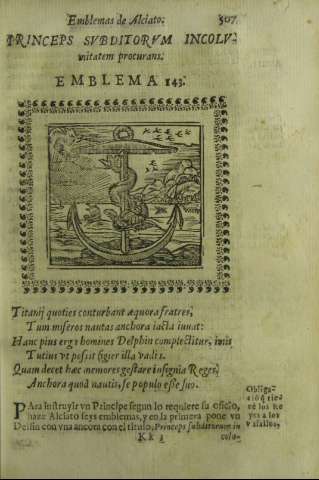 Emblemas de Alciato. 507
PRINCEPS SVBDITORVM INCOLV-
mitatem procurans.
EMBLEMA 143.
Titanij quoties conturbant æquora fratres,
Tum miseros nautas anchora iacta iuuat:
Hanc pius erga homines Delphin complectitur, imis
Tutius vt possit figier illa vadis.
Quam decet hæc memores gestare insignia Reges,
Anchora quod nautis, se populo esse suo.
PAra instruyr vn Principe segun lo requiere su oficio,
haze Alciato seys emblemas, y en la primera pone vn
Delfin con vna ancora con el titulo, Princeps subditorum in
Obliga-
ció q̃ tie-
nē los Re
yes a los
vasallos.
Kk 2 colu-